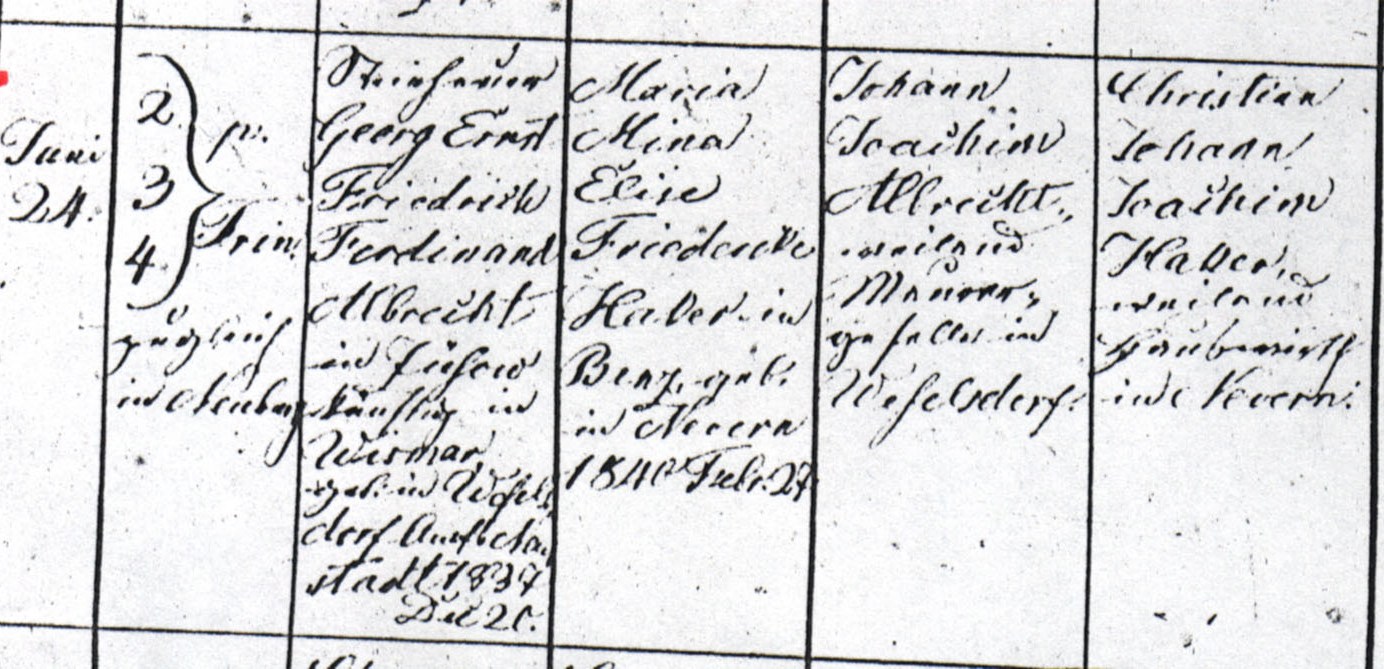 Juni
24.
2.
3
4.
p.
Trin.
zugleich
in Neuburg
Steinhauer
Georg Ernst
Friedrich
Ferdinand
Albrecht
in
künftig in
Wismar
geb. in Wesels
dorf Amts Neu
stadt 1837
Dec 20.
Maria
Mina
Elise
Friedericke
Haker in
Benz, geb.
in Nevern
1840 Febr. 27
Johann
Joachim
Albrecht,
weiland
Maurer-
geselle in
Weselsdorf.
Christian
Johann
Joachim
Haker,
weiland
in Nevern.